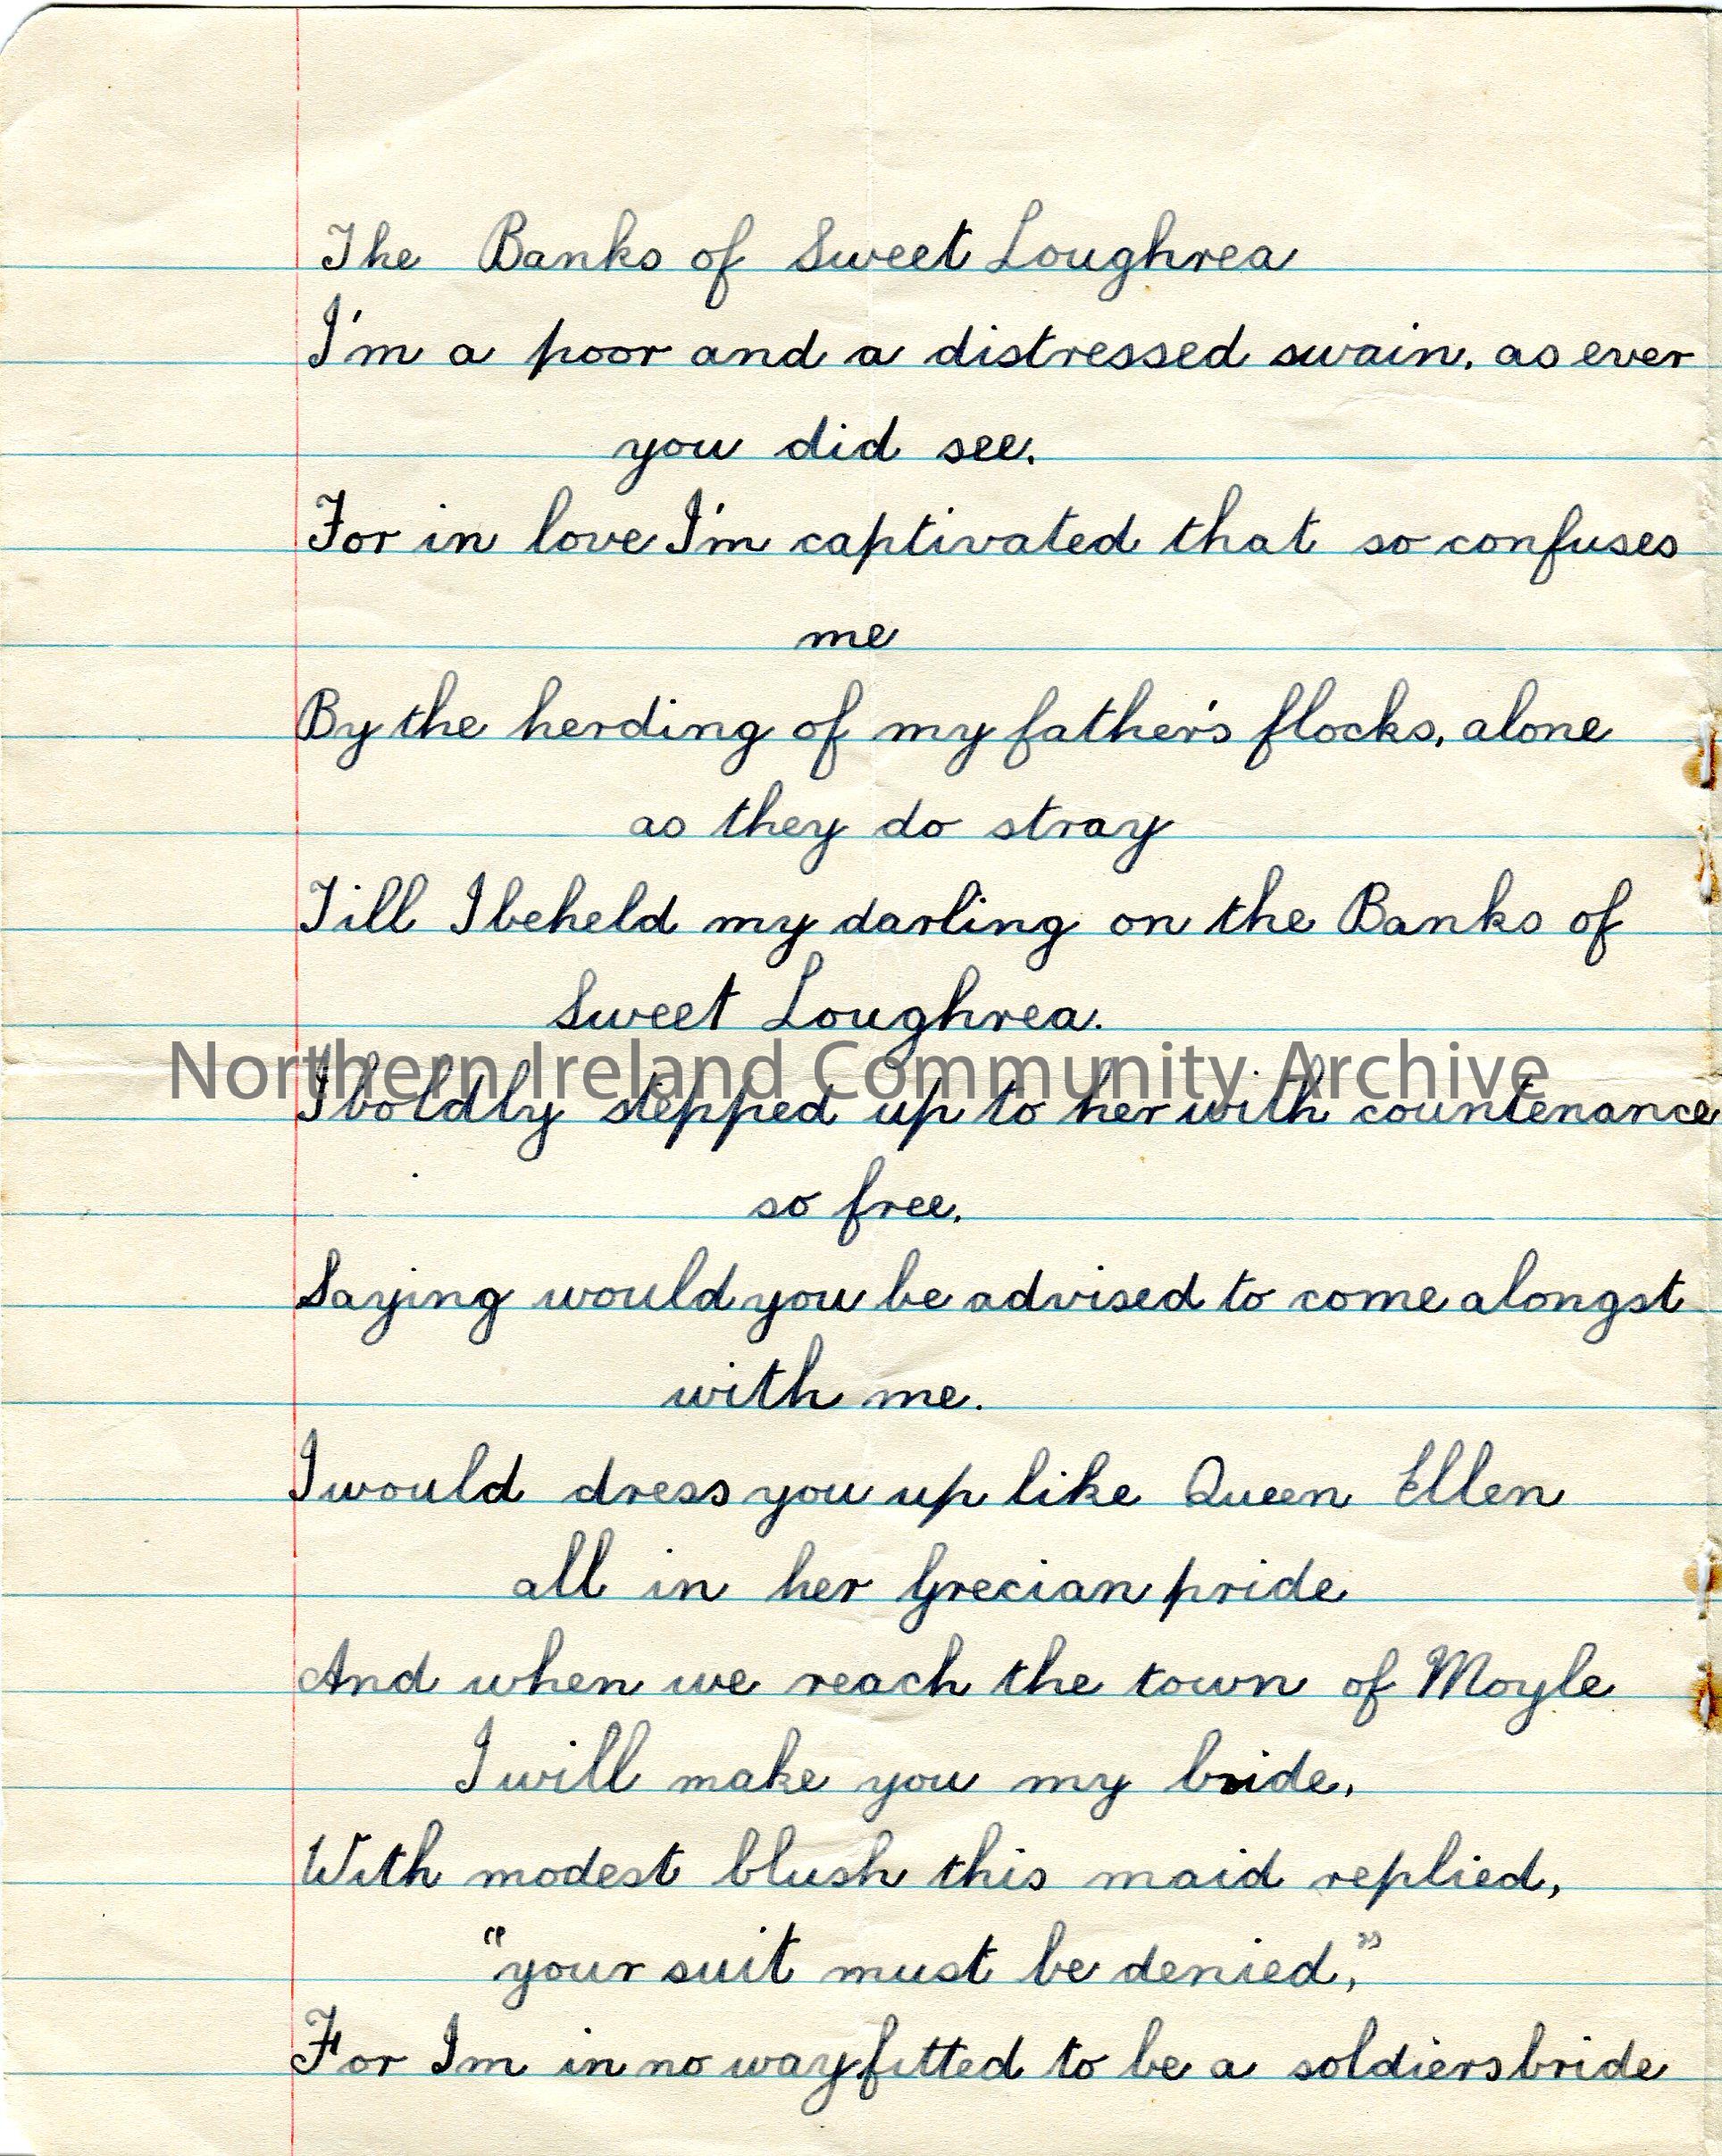 The Banks of Sweet Loughrea
I'm a poor and a distressed swain, as ever
you did see.
For in love I'm captivated that so confuses
me
By the herding of my father's flocks, alone
as they do stray
Till I beheld my darling on the Banks of
Sweet Loughrea.
Northern Ireland Community Archive
I boldly stepped up to her with countenance
so free.
Saying would you be advised to come alongst
with me.
I would dress you up like Queen Ellen
all in her Grecian pride
And when we reach the town of Moyle
I will make you my bride,
With modest blush this maid replied,
"your suit must be denied,"
For Im in no way fitted to be a soldiers bride